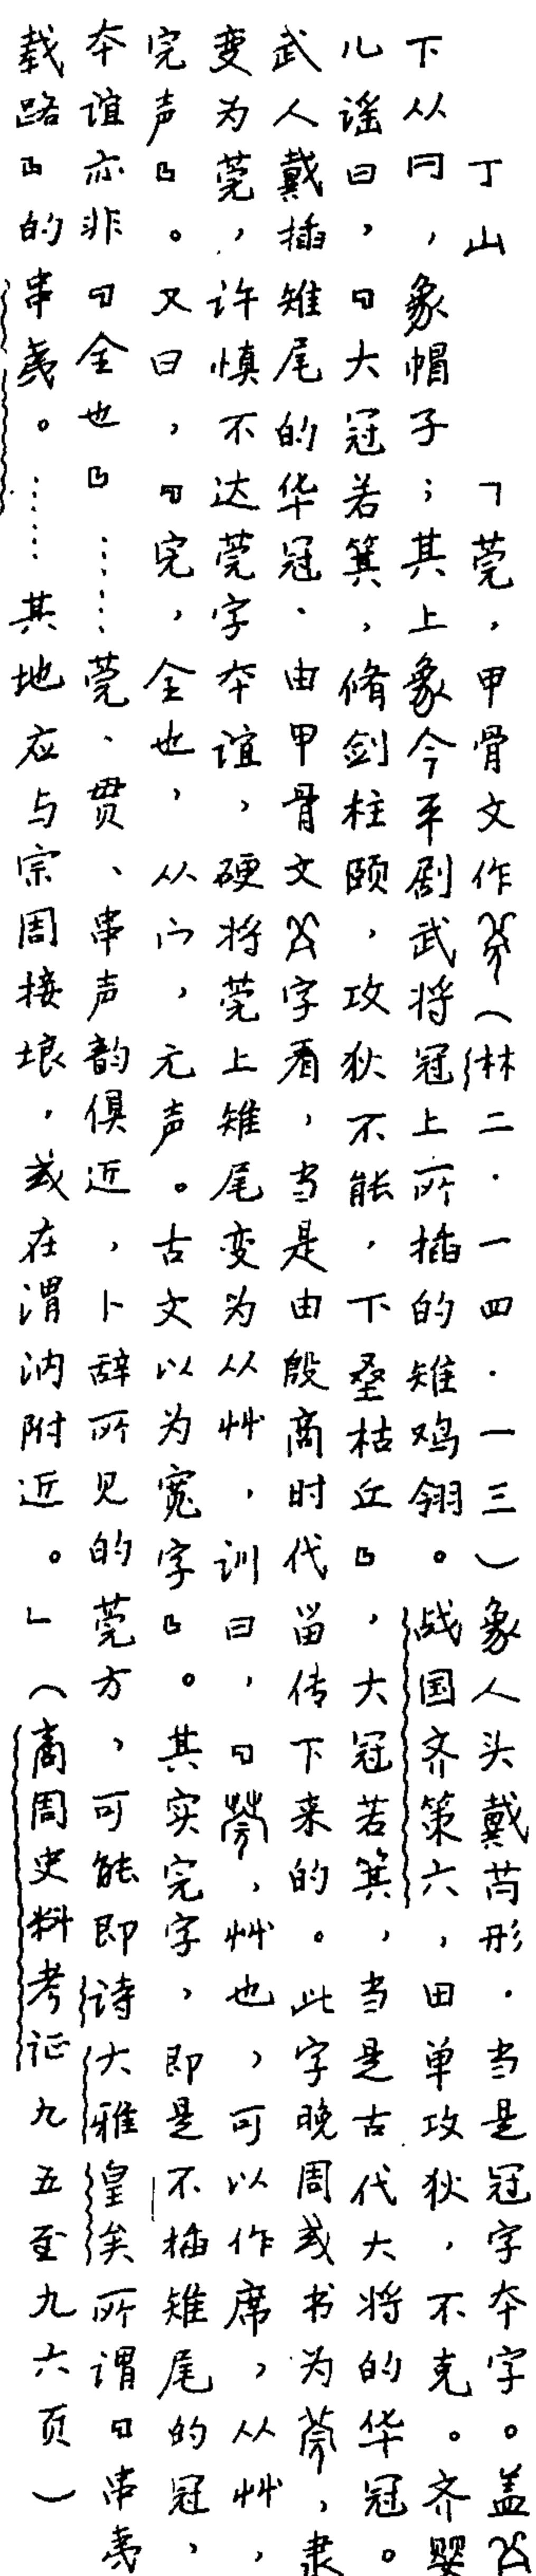 丁山　「莞，甲骨文作（林二·一四·一三）象人头戴芮形．当是冠字本字。盖
下从冃，象帽子；其上象今平剧武将冠上所插的雉鸡翎。战国齐策六，田单攻狄，不克。齐婴
儿谣曰，『大冠若箕，脩剑柱颐，攻狄不能，下垒枯丘』，大冠若箕，当是古代大将的华冠。
武人戴插雉尾的华冠．由甲骨文字看，当是由殷商时代留传下来的。此字晚周或书为，隶
变为莞，许慎不达莞字本谊，硬将莞上雉尾变为从艸，训曰，『，艸也，可以作席，从艸，
完声』。又曰，『完，全也，从宀，元声。古文以为宽字』。其实完字，即是不插雉尾的冠，
本谊亦非『全也』……莞、贯、串声韵俱近，卜辞所见的莞方，可能即诗大雅皇矣所谓『串夷
载路』的串夷。……其地应与宗周接壤，或在渭汭附近。」（商周史料考证九五至九六页）